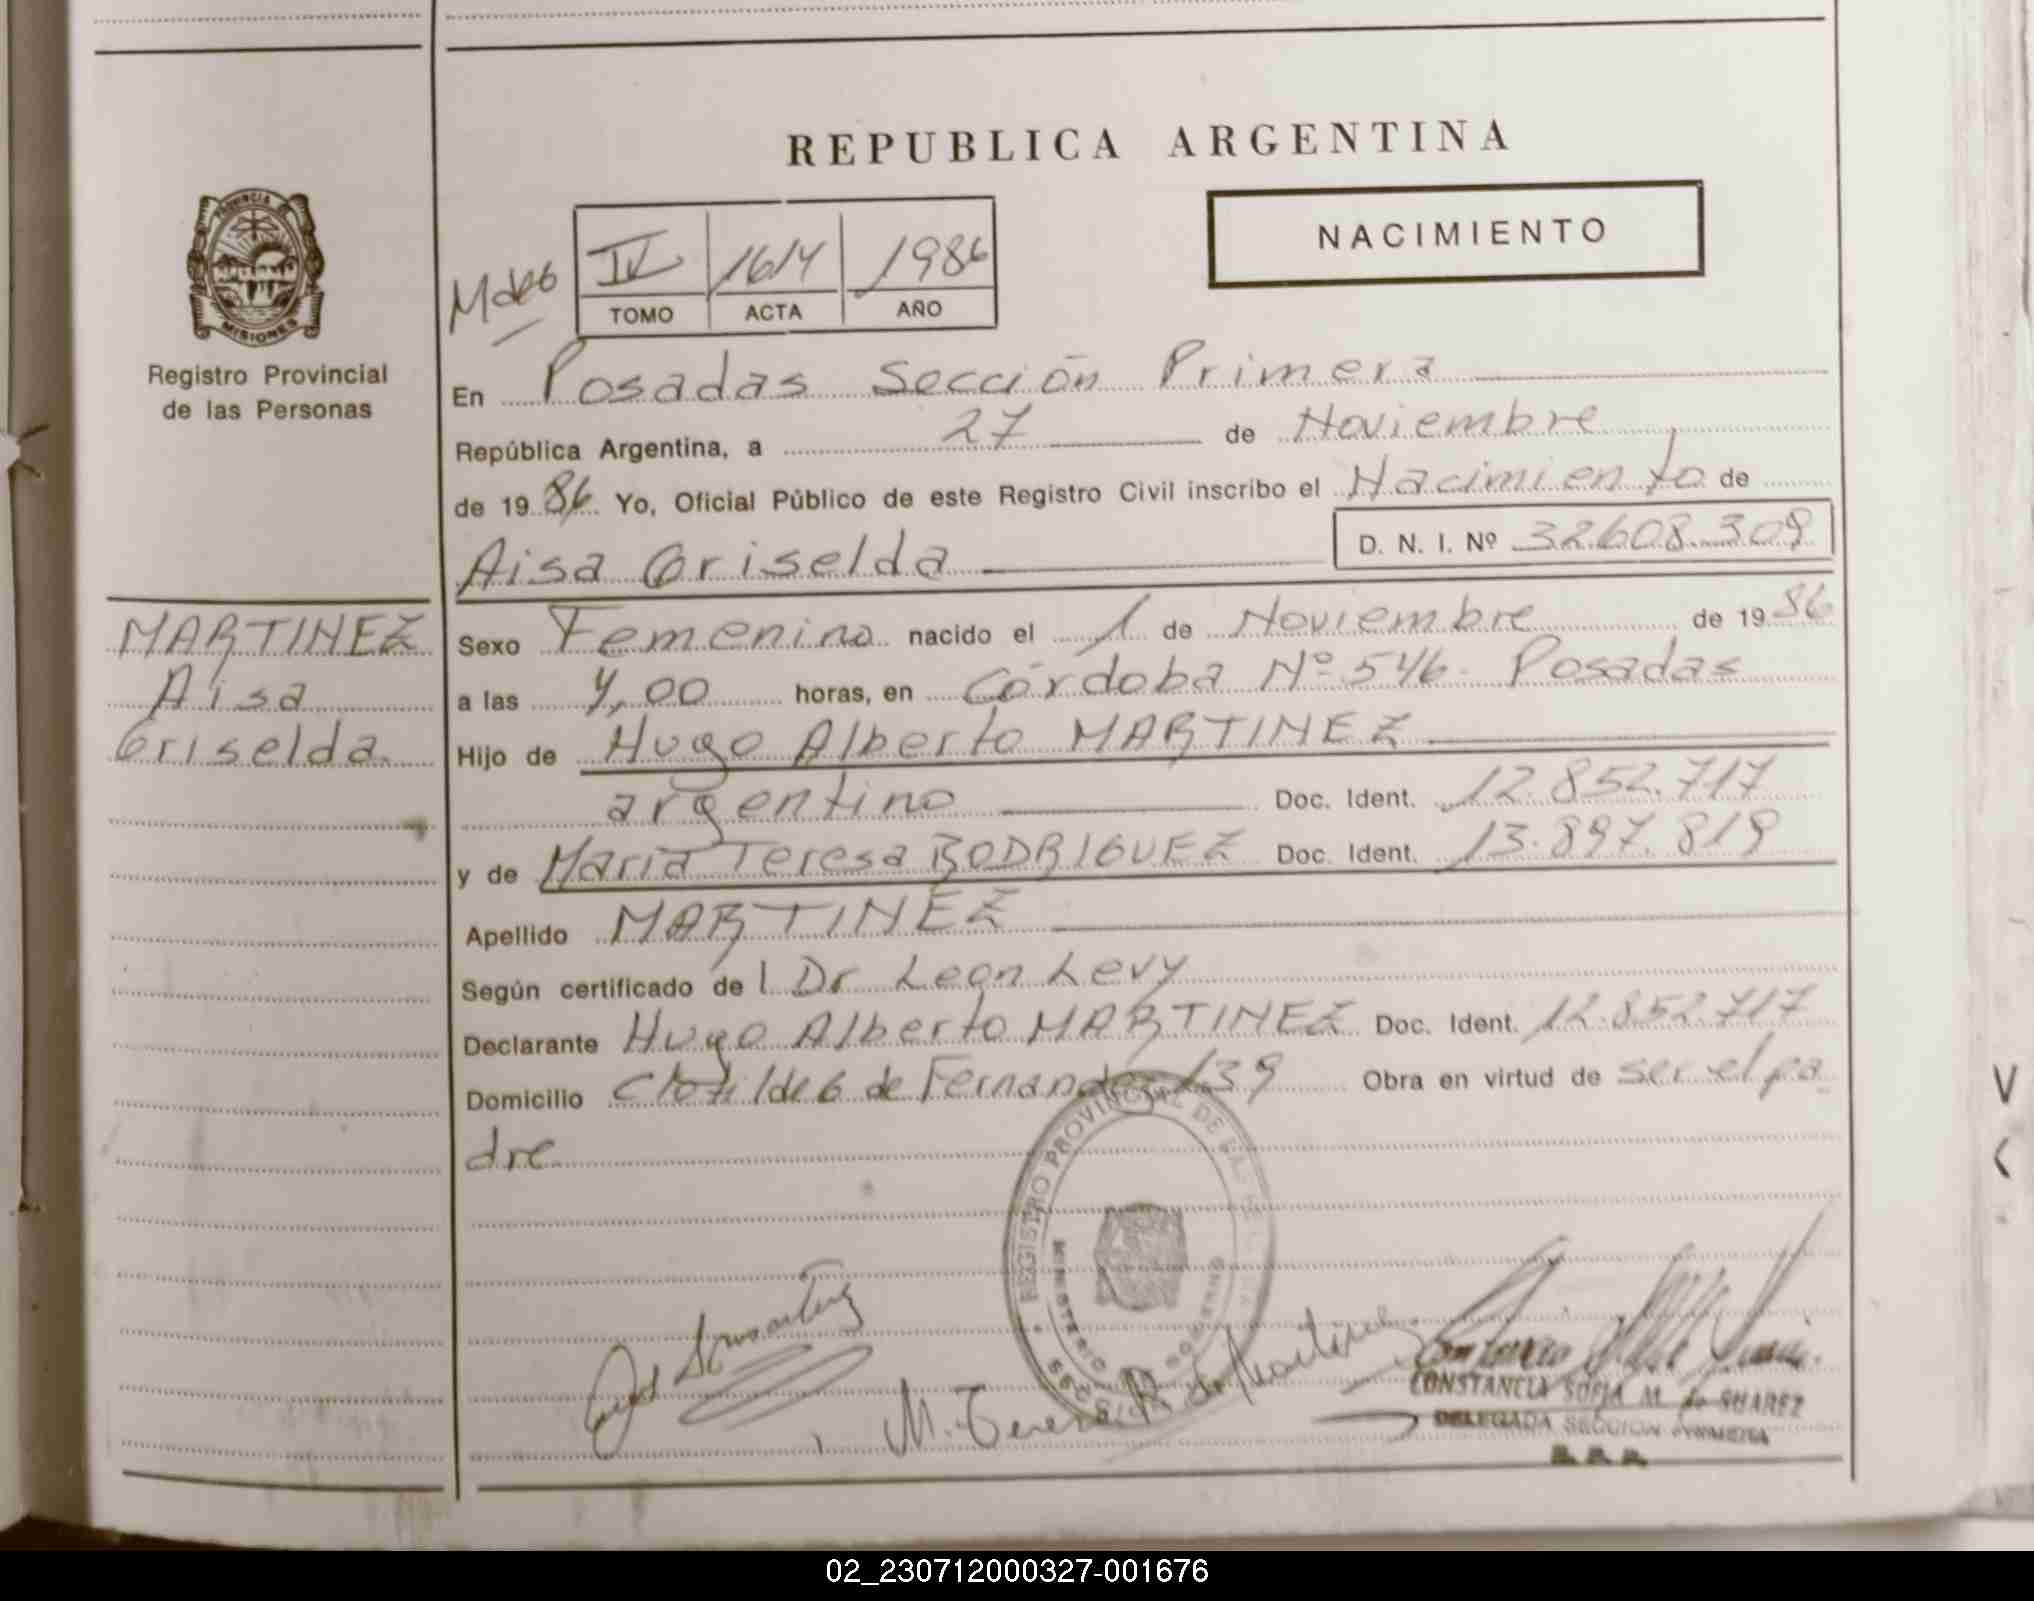 REPUBLICA ARGENTINA
NACIMIENTO
PROVINCIA DE
MISIONES
Registro Provincial
de las Personas
IV 1614 1986
TOMO ACTA AÑO
En Posadas Sección Primera
República Argentina, a 27 de Noviembre
de 19 86 Yo, Oficial Público de este Registro Civil inscribo el Nacimiento de
Aisa Griselda D. N. I. Nº 32.608.309
MARTINEZ
Aisa
Griselda
Sexo Femenino nacido el 1 de Noviembre de 19 86
a las 4,00 horas, en Córdoba Nº 546. Posadas
Hijo de Hugo Alberto MARTINEZ
argentino Doc. Ident. 12.852.717
y de María Teresa RODRIGUEZ Doc. Ident. 13.897.819
Apellido MARTINEZ
Según certificado de l Dr Leon Levy
Declarante Hugo Alberto MARTINEZ Doc. Ident. 12.852.717
Domicilio Clotilde G de Fernandez 139 Obra en virtud de ser el pa
dre
REGISTRO PROVINCIAL DE LAS
MINISTERIO GOBIERNO
M. Teresa R. de Martinez
CONSTANCIA SOFIA M. de SUAREZ
DELEGADA SECCION PRIMERA
02_230712000327-001676